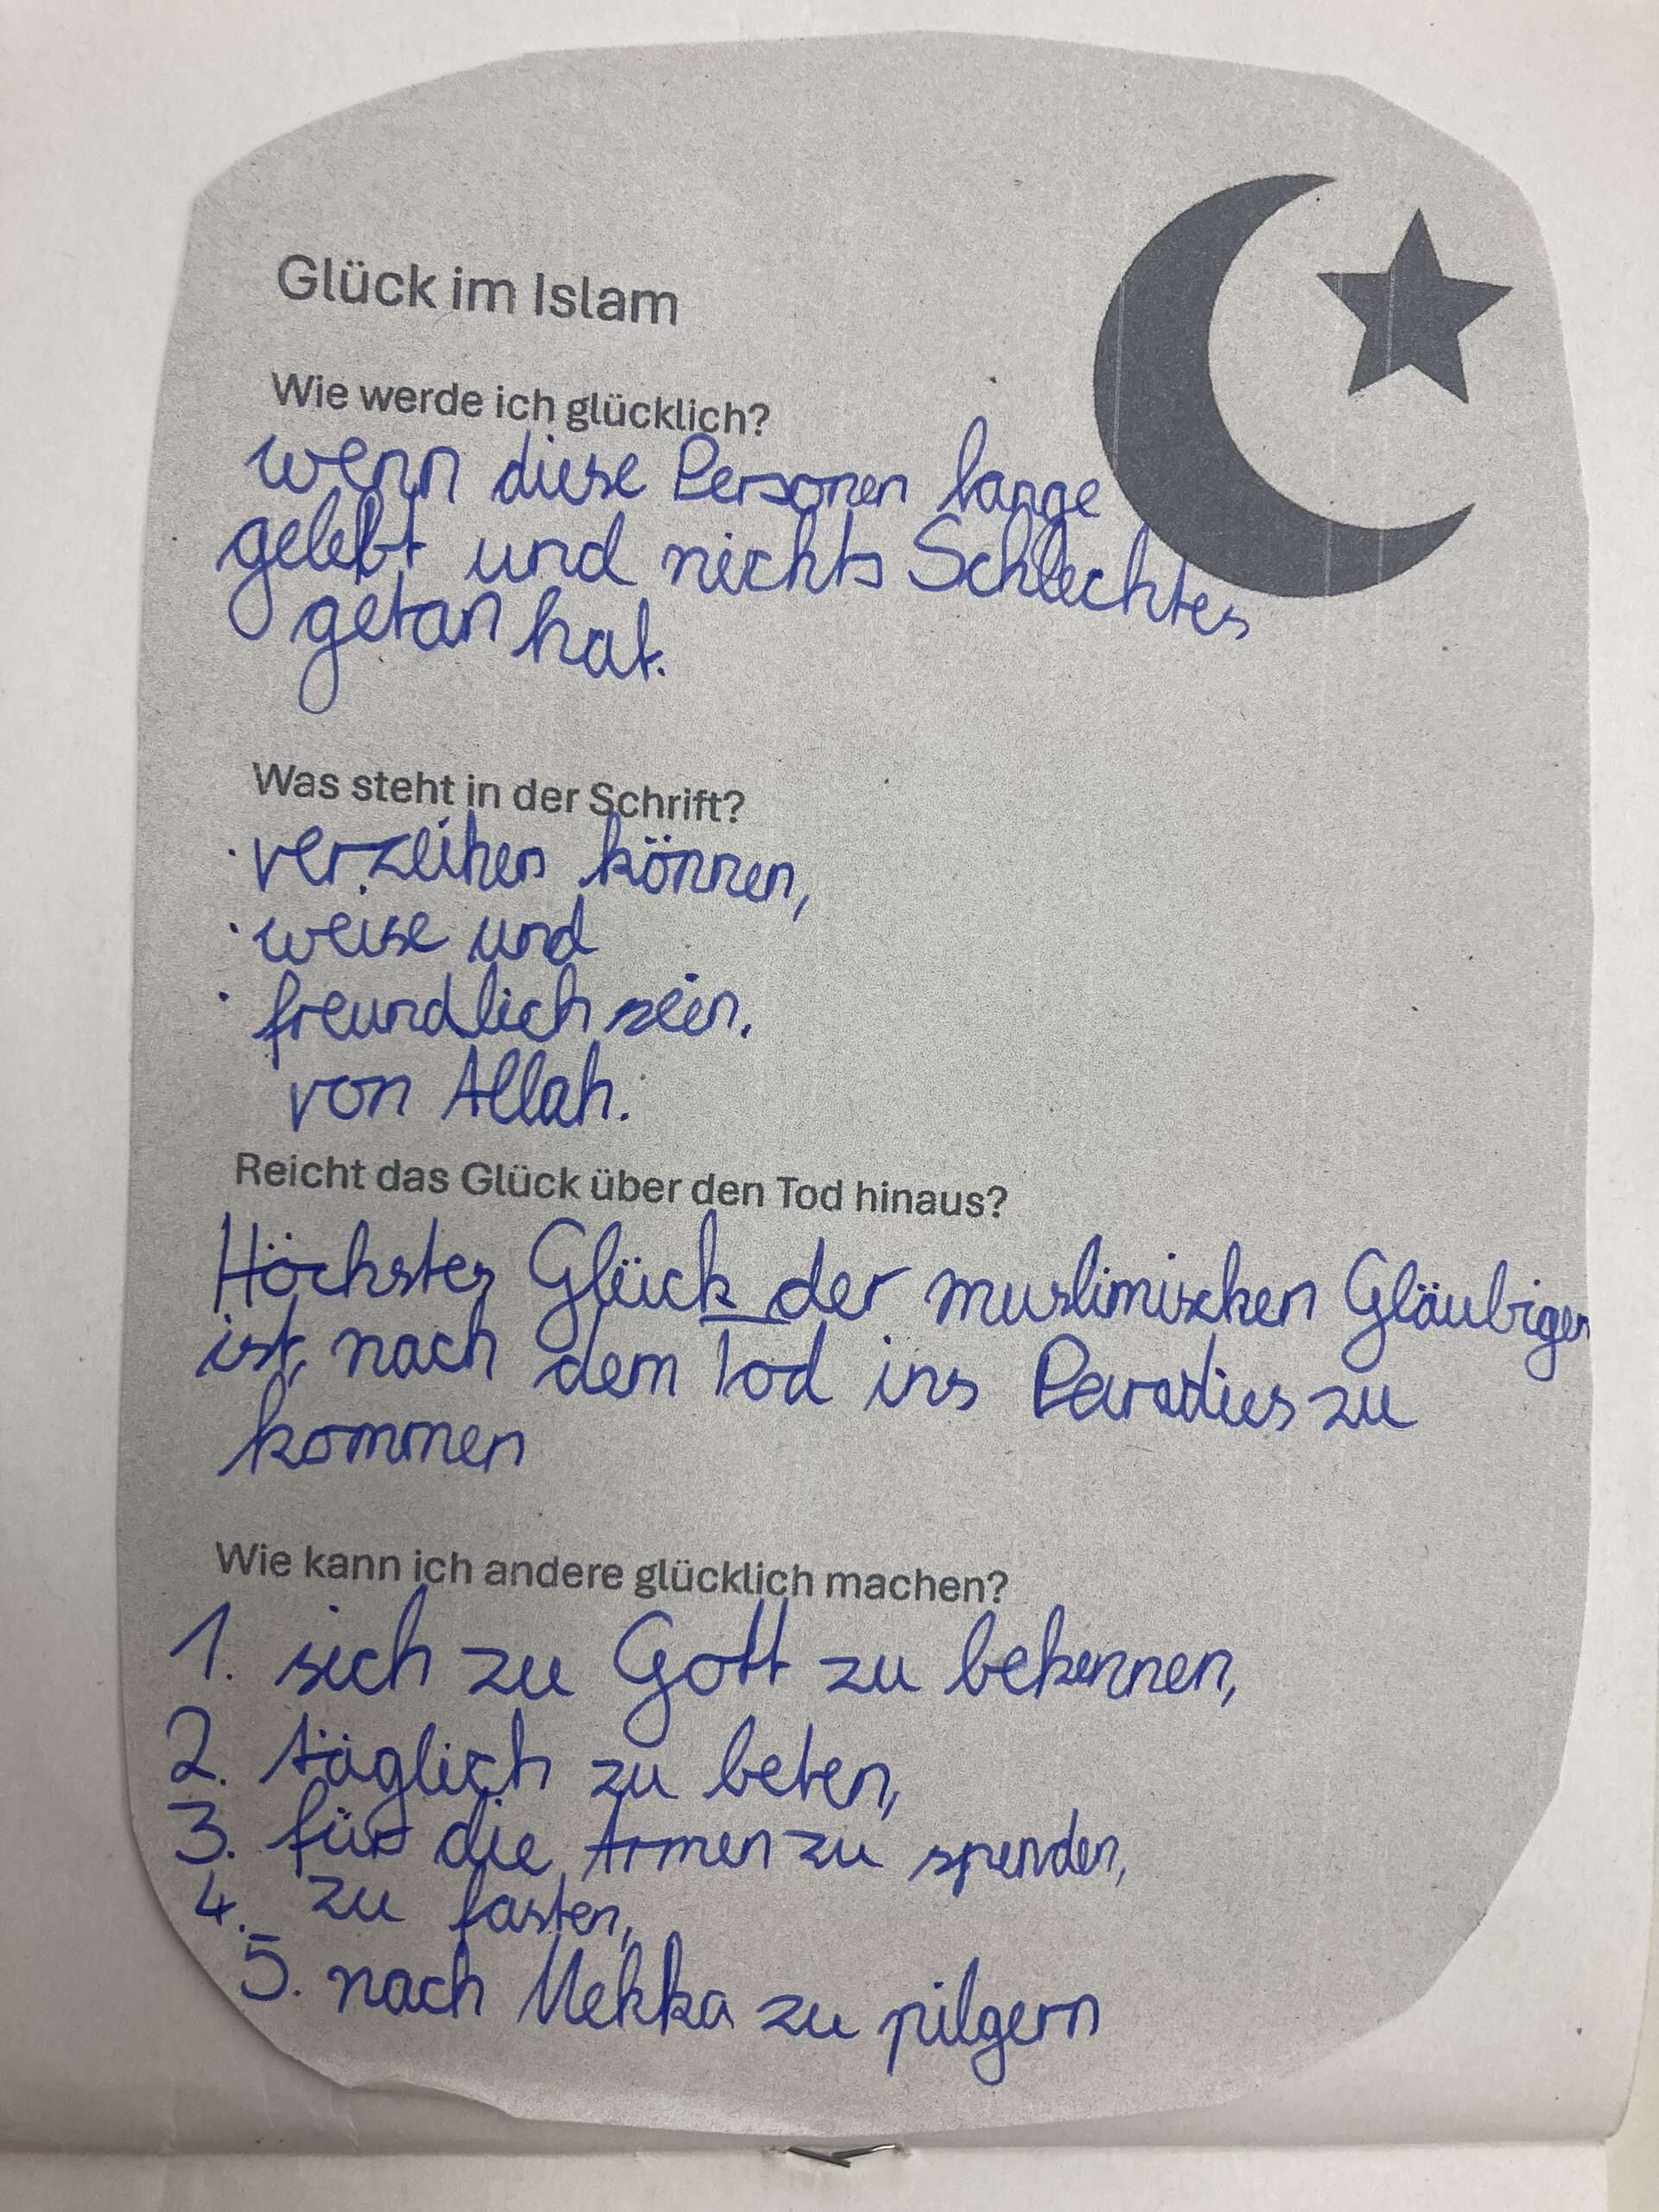 Glück im Islam
Wie werde ich glücklich?
wenn diese Personen lange
gelebt und nichts Schlechtes
getan hat.
Was steht in der Schrift?
· verzeihen können,
· weise und
· freundlich sein.
von Allah.
Reicht das Glück über den Tod hinaus?
Höchstes Glück der muslimischen Gläubigen
ist, nach dem Tod ins Paradies zu
kommen
Wie kann ich andere glücklich machen?
1. sich zu Gott zu bekennen,
2. täglich zu beten,
3. für die Armen zu spenden,
4. zu fasten,
5. nach Mekka zu pilgern